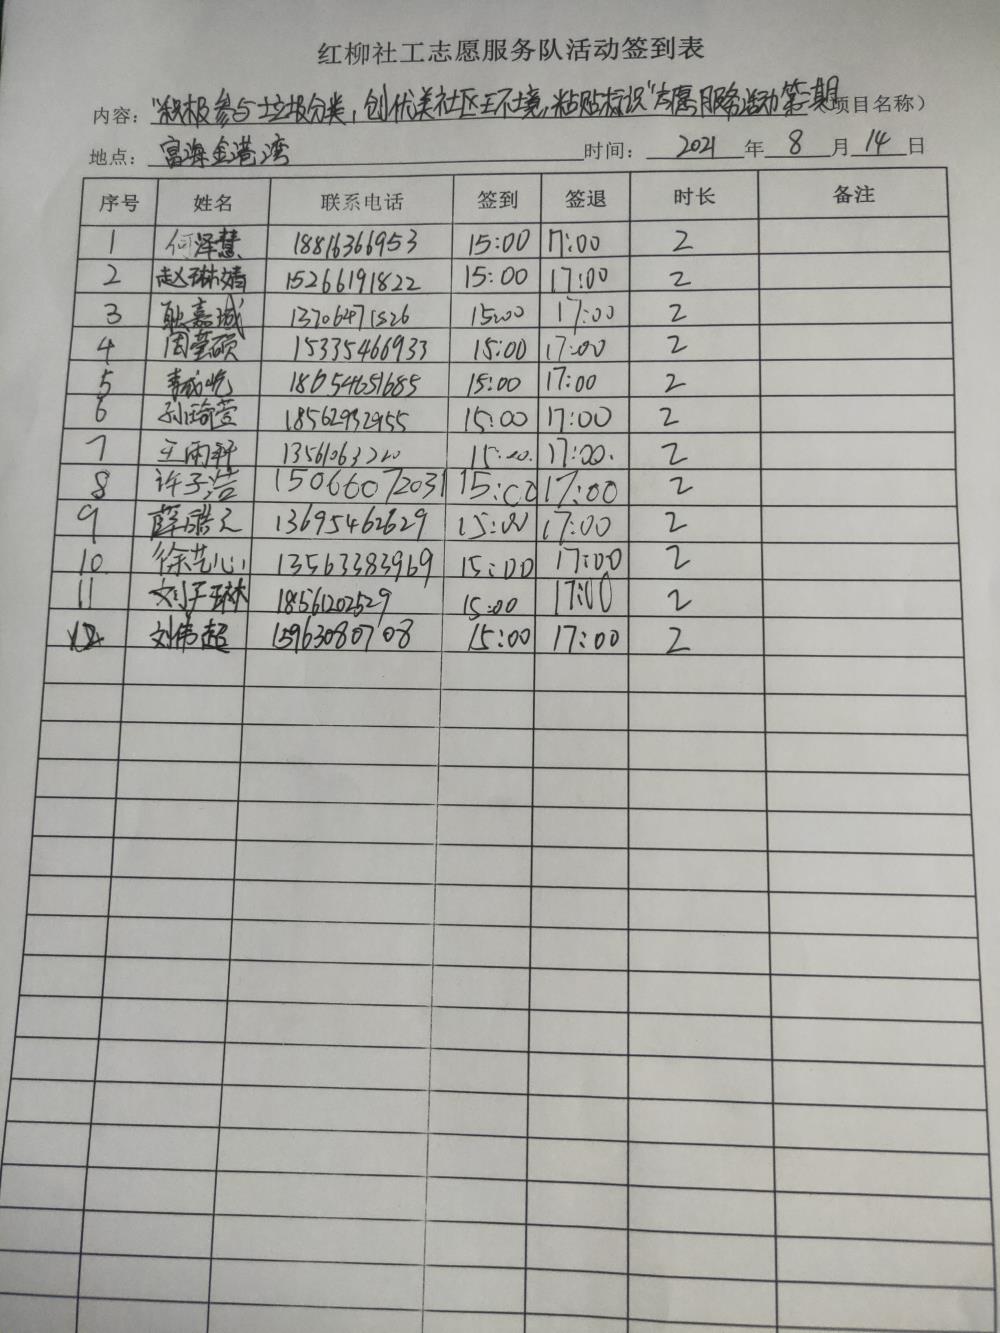 红柳社工志愿服务队活动签到表
内容：“积极参与垃圾分类，创优美社区环境，粘贴标识”志愿服务活动第二期（项目名称）
地点：富海金港湾 时间：2021年8月14日
序号 姓名 联系电话 签到 签退 时长 备注
1 何泽慧 18816366953 15:00 17:00 2
2 赵琳婧 15266191822 15:00 17:00 2
3 耿嘉诚 13706471526 15:00 17:00 2
4 周莹硕 15335466933 15:00 17:00 2
5 18654651685 15:00 17:00 2
6 孙琦萱 18562932955 15:00 17:00 2
7 王雨轩 15:00. 17:00. 2
8 许子浩 15066072031 15:00 17:00 2
9 薛皓元 13695462629 15:00 17:00 2
10. 徐艺心 13563383969 15:00 17:00 2
11 刘子琳 18561202529 15:00 17:00 2
12 刘伟超 15963080708 15:00 17:00 2